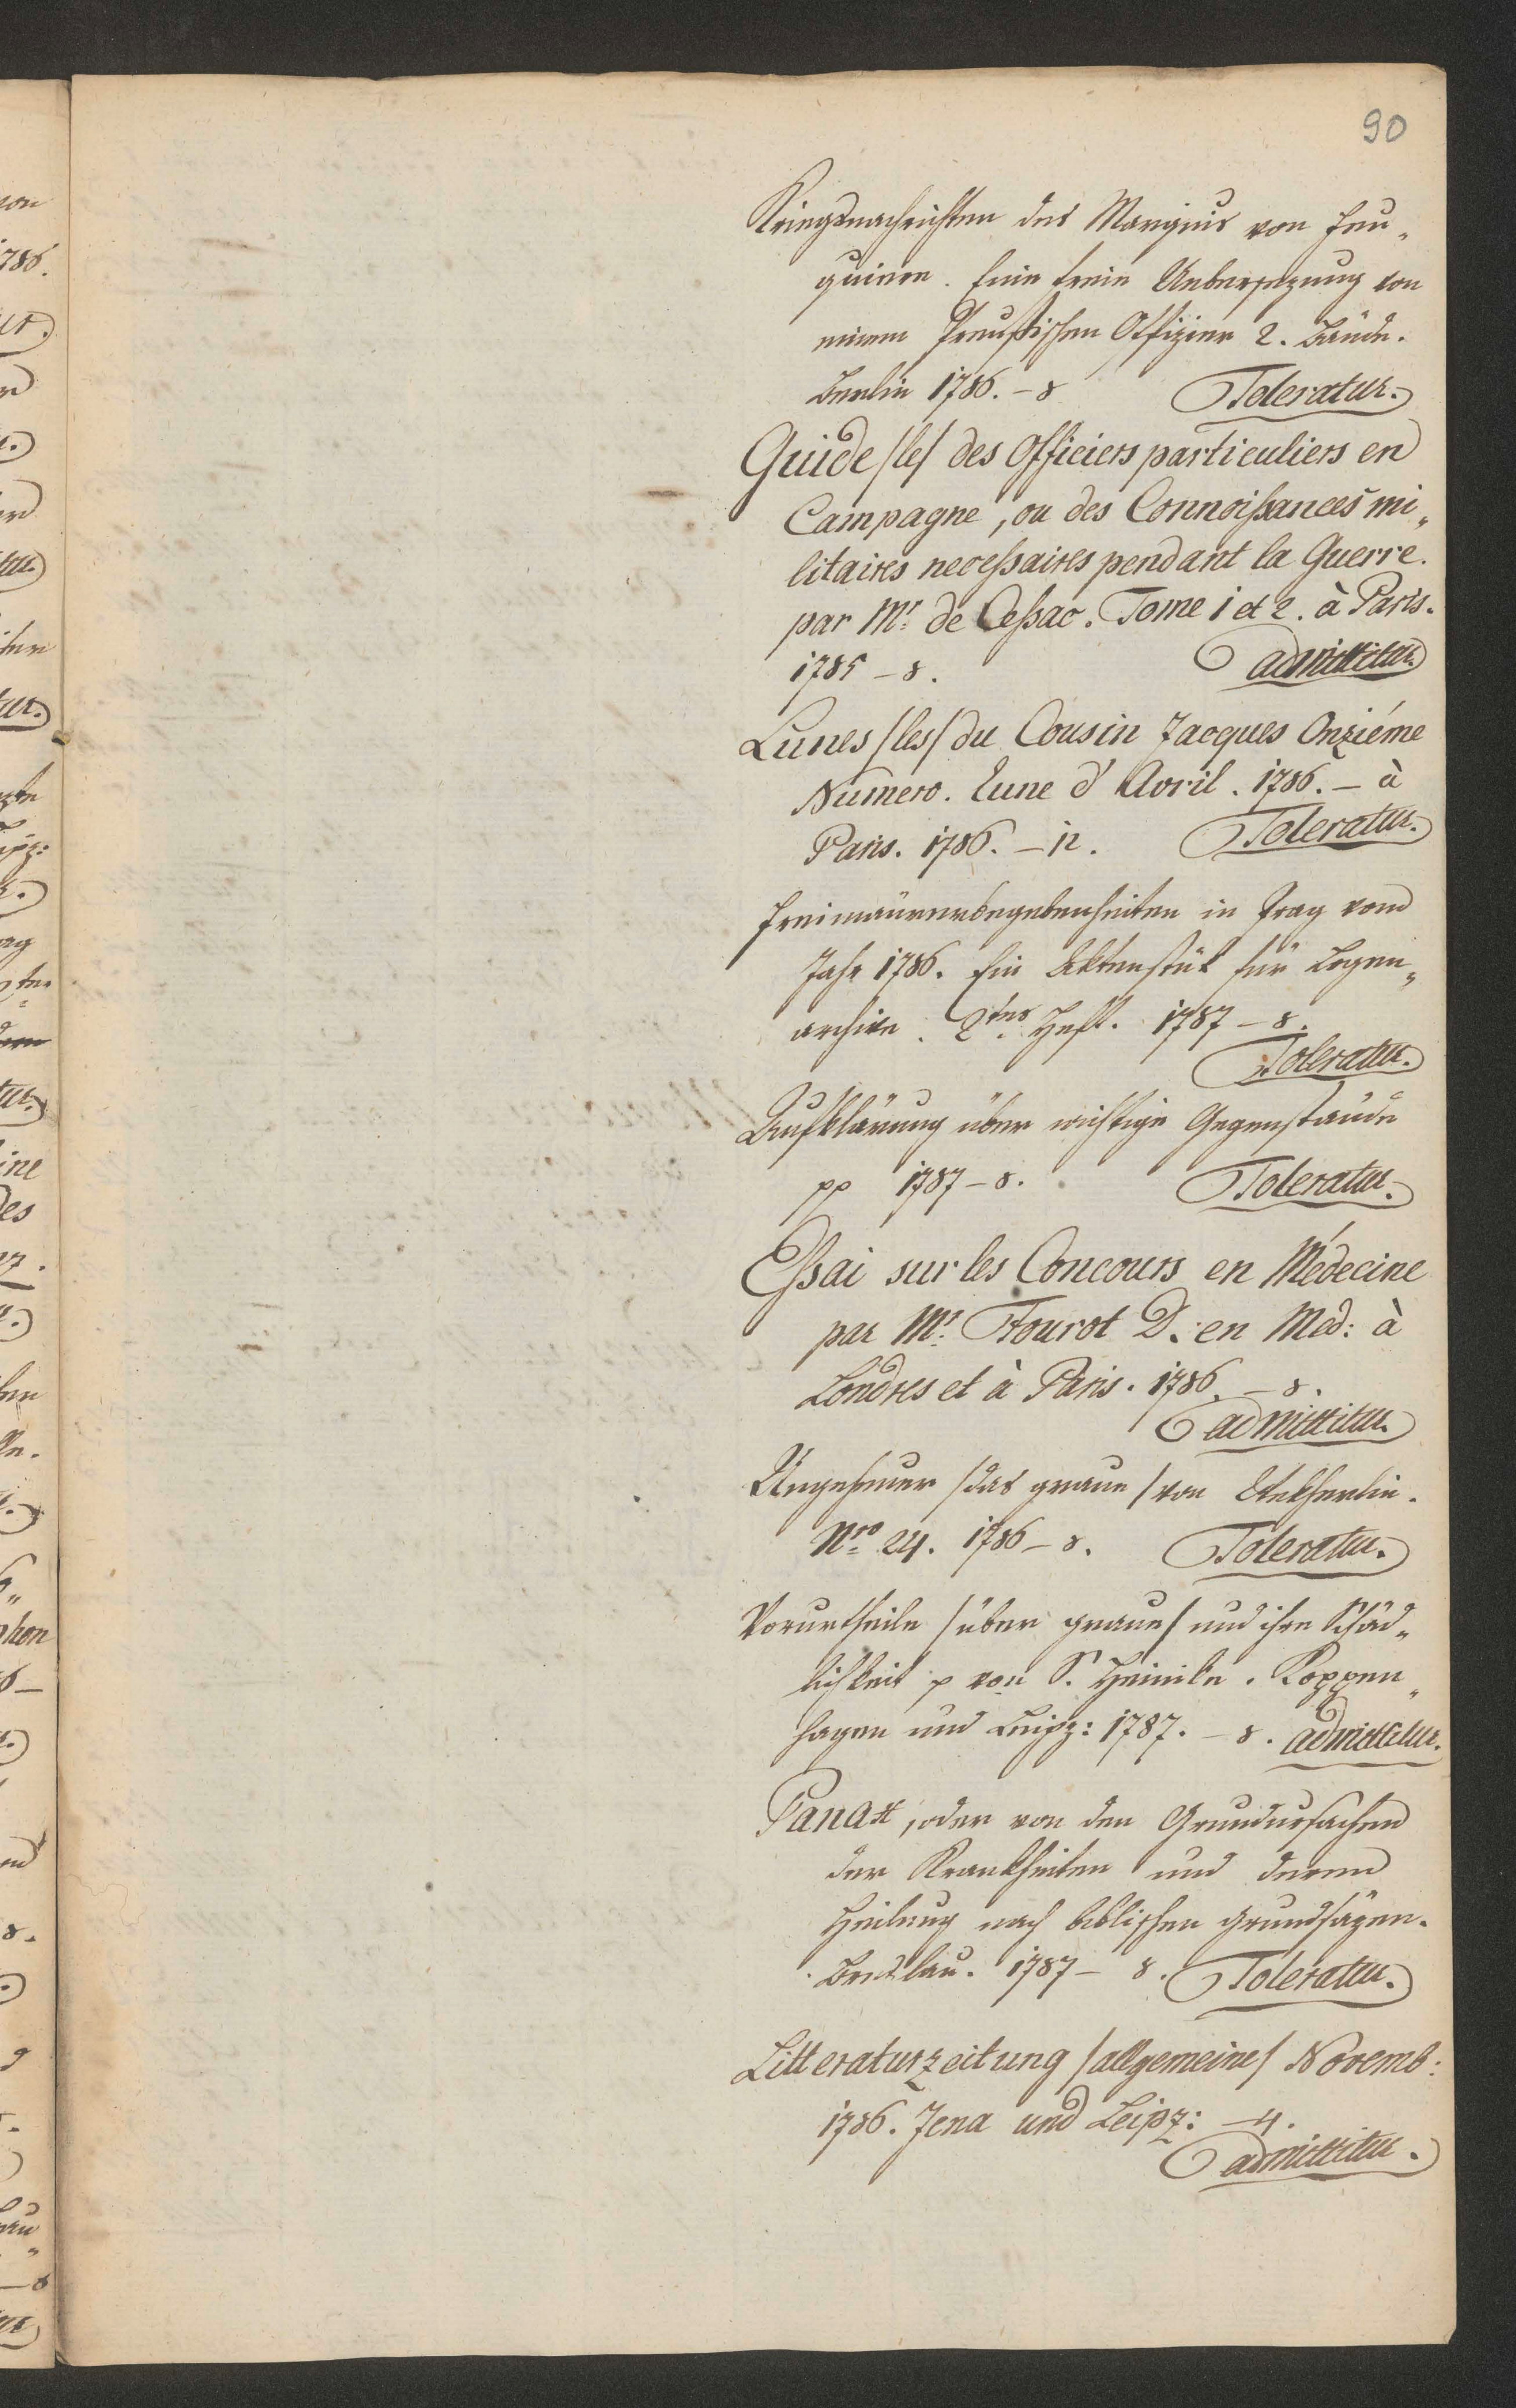 90
Kriegsnachrichten des Marquis von Feu„
quiere. Eine freie Uebersezung von
einem Preußischen Offizier 2. Bände.
Berlin 1786. – 8 Toleratur.
Guide /le/ des Officiers particuliers en
Campagne, ou des Connoißances mi„
litaires neceßaires pendant la Guerre.
par Mr. de Ceßac. Tome 1 et 2. à Paris.
1785 – 8. admittitur.
Lunes /les/ du Cousin Jacques Onziéme
Numero. Lune d'Avril. 1786. – à
Paris. 1786. – 12. Toleratur.
Freimäurerbegebenheiten in Prag vom
Jahr 1786. Ein Aktenstük für Logen„
archive. 2tes Heft. 1787 – 8.
Toleratur.
Aufklärung über wichtige Gegenstände
pp 1787 – 8. Toleratur.
Eßai sur les Concours en Médecine
par Mr. Tourot D. en Med: à
Londres et à Paris. 1786. – 8.
admittitur.
Ungeheuer /das graue/ von Wekherlin.
Nro 24. 1786 – 8. Toleratur.
Vorurtheile /über graue/ und ihre Schäd„
lichkeit p von S. Heinike. Koppen„
hagen und Leipz: 1787. – 8. admittitur.
Panax, oder von den Grundursachen
der Krankheiten und deren
Heilung nach biblischen Grundsäzen.
Breslau. 1787 – 8. Toleratur.
Litteraturzeitung /allgemeine/ Novemb:
1786. Jena und Leipz: – 4.
admittitur.